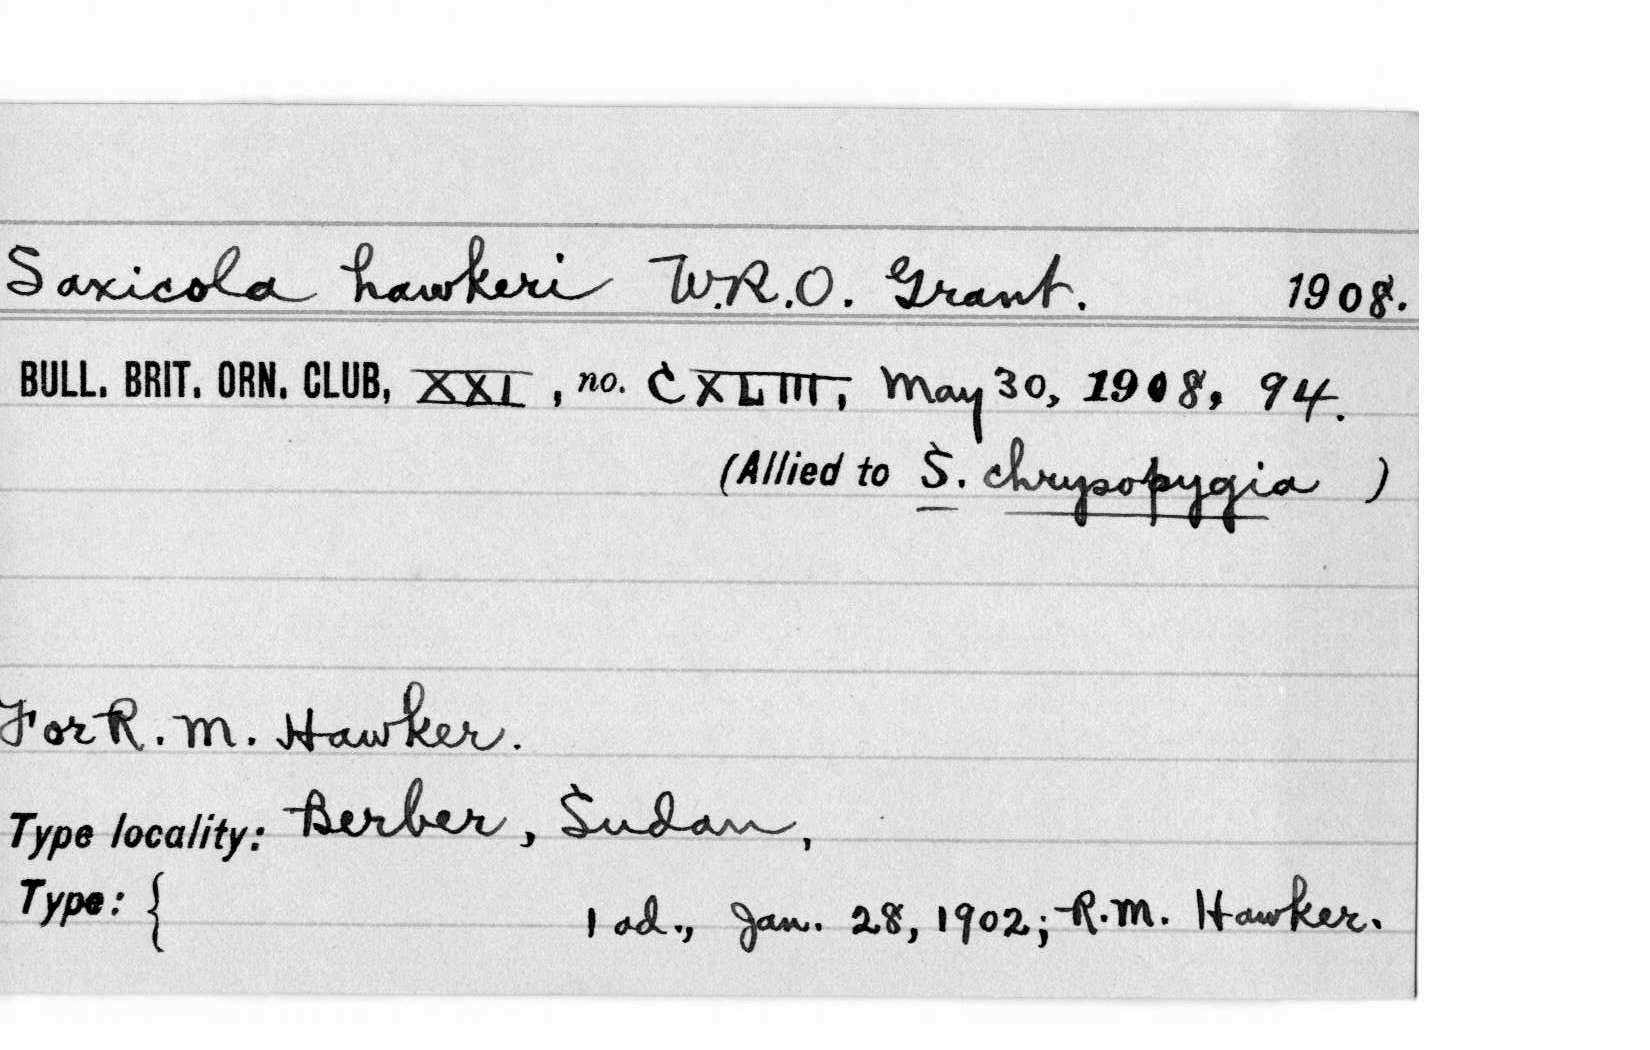 Saxicola hawkeri W.R.O. Grant. 1908.
BULL. BRIT. ORN. CLUB, XXI, no. CXLIII, May 30, 1908, 94.
(Allied to S. chrysopygia )
For R. M. Hawker.
Type locality: Berber, Sudan,
Type: { 1 ad., Jan. 28, 1902; R.M. Hawker.